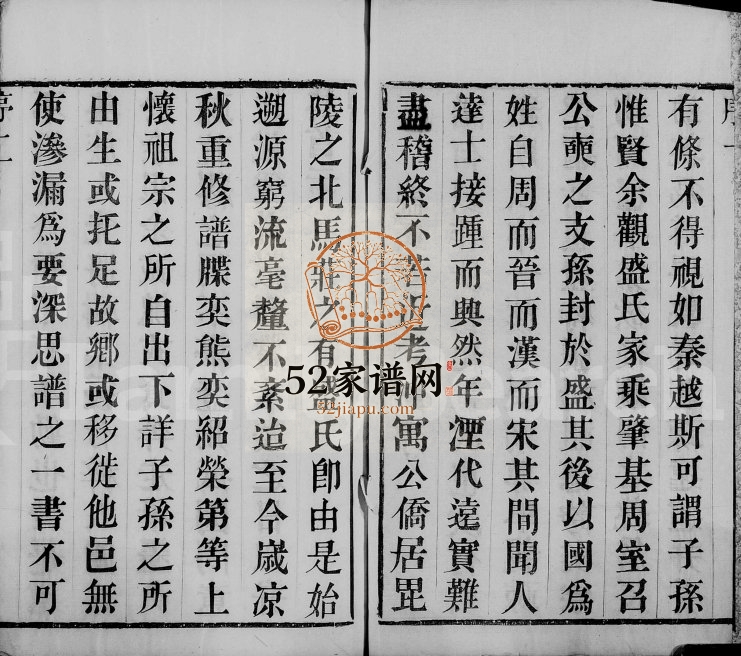 有條不得視如秦越斯可謂子孫
惟賢余觀盛氏家乘肇基周室召
公奭之支孫封於盛其後以國爲
姓自周而晉而漢而宋其間聞人
達士接踵而興然年湮代遠實難
盡稽終不若近考寓公僑居毘
陵之北馬莊之有盛氏卽由是始
遡源窮流毫釐不紊迨至今歲凉
秋重修譜牒奕熊奕紹榮第等上
懷祖宗之所自出下詳子孫之所
由生或托足故鄉或移徙他邑無
使滲漏爲要深思譜之一書不可
52家谱网
52jiapu.com